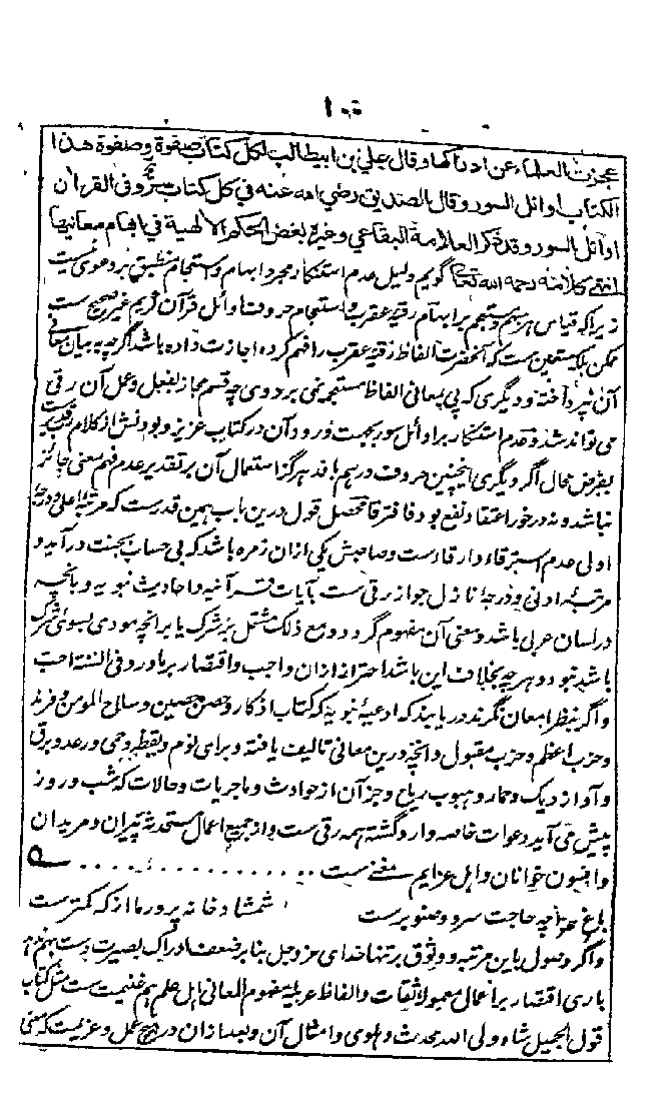 ۱۰۰
عجزت العلماء عن ادراكها وقال علي بن ابيطالب لكل كتاب صفوة وصفوة هذا
الكتاب اوائل السور وقال الصديق رضي الله عنه في كل كتاب سر وفى القران
اوائل السور وقد ذكر العلامة البقاعي وغيره بعض الحكم الالهية في ابهام معانيها
انتهى كلامه رحمه الله تعالى گویم دلیل عدم استنکار مجرد ابهام و استعجام منطبق بر دعوی نیست
زیرا که قیاس هر مبهم و مستعجم بر ابهام رقیهٔ عقرب و استعجام حروف اوائل قرآن کریم غیر صحیح ست
ممکن بلکه متعین ست که آنحضرت الفاظ رقیهٔ عقرب را فهم کرده اجازت داده باشد اگرچه به بیان معانی
آن نپرداخته و دیگری که پی بمعانی الفاظ مستعجمه نمی برد وی چه قسم مجاز بفعل و عمل آن رقی
می تواند شد و عدم استنکار بر اوائل سور بجهت ورود آن در کتاب عزیز و بودنش از کلام ست
بفرض محال اگر دیگری اینچنین حروف در هم بافد هرگز استعمال آن بر تقدیر عدم فهم معنی جائز
نباشد و نه درخور اعتقاد نفع بود فافترقا محصل قول درین باب همین قدر ست که مرتبهٔ اعلی و درجهٔ
اولی عدم استرقا و ارقا دست و صاحبش یکی ازان زمره باشد که بی حساب بجنت در آید و
مرتبهٔ ادنی و درجهٔ نازل جواز رقی ست بآیات قرآنیه و احادیث نبویه و بآنچه
در لسان عربی باشد و معنی آن مفهوم گردد و مع ذلک مشتمل بر شرک یا بر آنچه مودی بسوی شرک
باشد نبود و هرچه بخلاف این باشد احتراز ازان واجب و اقتصار بر ما ورد فی السنة احب
و اگر بنظر امعان نگرند دریابند که ادعیهٔ نبویه که کتاب اذکار و حصن حصین و سلاح المومن و فرند
و حزب اعظم و حزب مقبول و آنچه درین معانی تالیف یافته و برای نوم و یقظه و حمی و رعد و برق
و آواز دیک و حمار و هبوب ریاح و جز آن از حوادث و ماجریات و حالات که شب و روز
پیش می آید دعوات خاصه وارد گشته همه رقی ست و از جمیع اعمال مستحدثهٔ پیران و مریدان
و افسون خوانان و اهل عزایم مغنی ست
باغ مرا چه حاجت سرو و صنوبر ست شمشاد خانه پرور ما از که کمتر ست
و اگر وصول باین مرتبه و وثوق بر تنها خدای عز و جل بنا بر ضعف ادراک بصیرت بهم ندهد
باری اقتصار بر اعمال معموله ثقات و الفاظ عربیه مفهوم المعانی اهل علم هم غنیمت ست مثل کتاب
قول الجمیل شاه ولی الله محدث دهلوی و امثال آن و بعد ازان در هیچ عمل و عزیمت که معنی